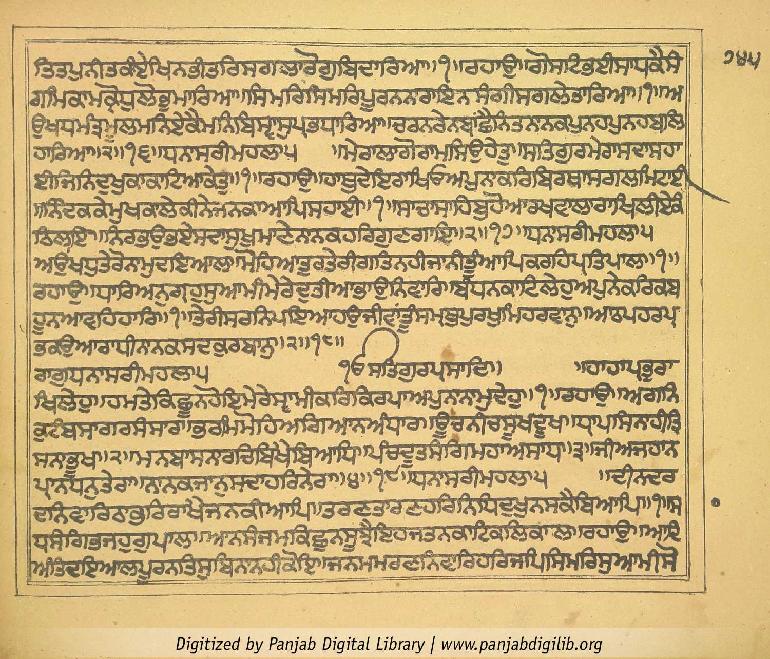 ਤਿਤਪੁਨੀਤਕੰਏਖਿਨਭੀਤਰਿਸਗਲਾਰੋਗੁਬਿਦਾਰਿਆ॥੧॥ਰਹਾਉ॥ਗੋਸਟਿਭਈਸਾਧਕੈਸੰ
ਗਮਿਕਾਮਕ੍ਰੋਧੁਲੋਭੁਮਾਰਿਆ॥ਸਿਮਰਿਸਿਮਰਿਪੂਰਨਨਰਾਇਨਸੰਗੀਸਗਲੇਤਾਰਿਆ॥੧॥ਅ
ਉਖਧਮੰਤ੍ਰਮੂਲਮਨਿਏਕੈਮਨਿਬਿਸ੍ਵਾਸੁਪ੍ਰਭਧਾਰਿਆ॥ਚਰਨਰੇਨਬਾਂਛੈਨਿਤਨਾਨਕਪੁਨਹਪੁਨਹਬਲਿ
ਹਾਰਿਆ॥੨॥੧੬॥ਧਨਾਸਰੀਮਹਲਾ੫ ॥ਮੇਰਾਲਾਗੋਰਾਮਸਿਉਹੇਤੁ॥ਸਤਿਗੁਰਮੇਰਾਸਦਾਸਹਾ
ਈਜਿਨਿਦੁਖੁਕਾਕਾਟਿਆਕੇਤੁ॥੧॥ਰਹਾਉ॥ਹਾਥਦੇਇਰਾਖਿਓਅਪੁਨਾਕਰਿਬਿਰਥਾਸਗਲਮਿਟਾਈ
॥ਨਿੰਦਕਕੇਮੁਖਕਾਲੇਕੀਨੇਜਨਕਾਆਪਿਸਹਾਈ॥੧॥ਸਾਚਾਸਾਹਿਬੁਹੋਆਰਖਵਾਲਾਰਾਖਿਲੀਏਕੰ
ਠਿਲਾਇ॥ਨਿਰਭਉਭਏਸਦਾਸੁਖਮਾਣੇਨਾਨਕਹਰਿਗੁਣਗਾਇ॥੨॥੧੭॥ਧਨਾਸਰੀਮਹਲਾ੫
ਅਉਖਧੁਤੇਰੋਨਾਮੁਦਇਆਲ॥ਮੋਹਿਆਤੁਰਤੇਰੀਗਤਿਨਹੀਜਾਨੀਤੂੰਆਪਿਕਰਹਿਪ੍ਰਤਿਪਾਲ॥੧॥
ਰਹਾਉ॥ਧਾਰਿਅਨੁਗ੍ਰਹੁਸੁਆਮੀਮੇਰੇਦੁਤੀਆਭਾਉਨਿਵਾਰਿ॥ਬੰਧਨਕਾਟਿਲੇਹੁਅਪੁਨੇਕਰਿਕਬ
ਹੂਨਆਵਹਹਾਰਿ॥੧॥ਤੇਰੀਸਰਨਿਪਇਆਹਉਜੀਵਾਂਤੂੰਸੰਮ੍ਰਥੁਪੁਰਖੁਮਿਹਰਵਾਨੁ॥ਆਠਪਹਰਪ੍ਰ
ਭਕਉਆਰਾਧੀਨਾਨਕਸਦਕੁਰਬਾਨੁ॥੨॥੧੮॥
ਰਾਗੁਧਨਾਸਰੀਮਹਲਾ੫ ੴਸਤਿਗੁਰਪ੍ਰਸਾਦਿ॥ ॥ਹਾਹਾਪ੍ਰਭਰਾ
ਖਿਲੇਹੁ॥ਹਮਤੇਕਿਛੂਨਹੋਇਮੇਰੇਸ੍ਵਾਮੀਕਰਿਕਿਰਪਾਅਪੁਨਾਨਾਮੁਦੇਹੁ॥੧॥ਰਹਾਉ॥ਅਗਨਿ
ਕੁਟੰਬਸਾਗਰਸੰਸਾਰ॥ਭਰਮਮੋਹਅਗਿਆਨਅੰਧਾਰ॥੧॥ਊਚਨੀਚਸੂਖਦੂਖ॥ਧ੍ਰਾਪਸਿਨਾਹੀਤ੍ਰਿ
ਸਨਾਭੂਖ॥੨॥ਮਨਿਬਾਸਨਾਰਚਿਬਿਖੈਬਿਆਧਿ॥ਪੰਚਦੂਤਸੰਗਿਮਹਾਅਸਾਧ॥੩॥ਜੀਅਜਹਾਨੁ
ਪ੍ਰਾਨਧਨੁਤੇਰਾ॥ਨਾਨਕਜਾਨੁਸਦਾਹਰਿਨੇਰਾ॥੪॥੧੯॥ਧਨਾਸਰੀਮਹਲਾ੫ ॥ਦੀਨਦਰ
ਦਨਿਵਾਰਿਠਾਕੁਰਰਾਖੈਜਨਕੀਆਪਿ॥ਤਰਣਤਾਰਣਹਰਿਨਿਧਿਦੂਖੁਨਸਕੈਬਿਆਪਿ॥੧॥ਸਾ
ਧਸੰਗਿਭਜਹੁਗੁਪਾਲ॥ਆਨਸੰਜਮਕਿਛੁਨਸੂਝੈਇਹਜਤਨਕਾਟਿਕਲਿਕਾਲ॥ਰਹਾਉ॥ਆਦਿ
ਅੰਤਿਦਇਆਲਪੂਰਨਤਿਸੁਬਿਨਾਨਹੀਕੋਇ॥ਜਨਮਮਰਣਨਿਵਾਰਿਹਰਿਜਪਿਸਿਮਰਿਸੁਆਮੀਸੋ
੨੪੫
Digitized by Panjab Digital Library | www.panjabdigilib.org